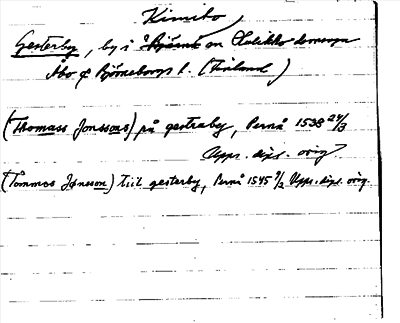 Kimito
Gesterby, by i Bjärnå sn Halikko domsaga
Åbo & Björneborgs l. (Finland)
(Thomass Jonssons) på gestraby, Pernå 1538 24/3
Upps. dipl. orig.
(Tommas Jønsson) till gesterby, Pernå 1545 7/2 Upps. dipl. orig.